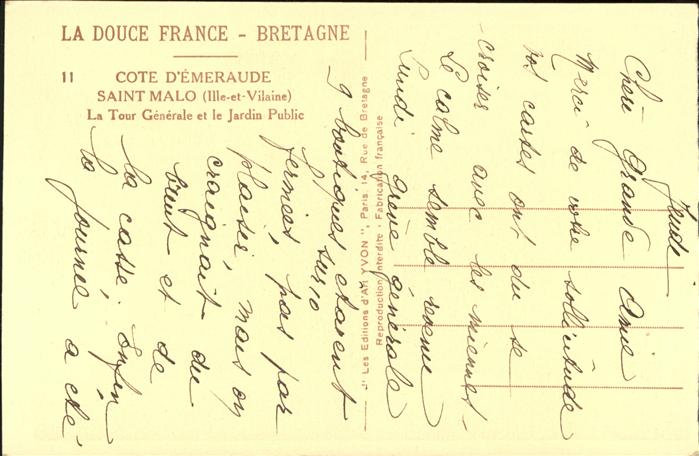 LA DOUCE FRANCE - BRETAGNE
11 COTE D'ÉMERAUDE
SAINT MALO (Ille-et-Vilaine)
La Tour Générale et le Jardin Public
"Les Editions d'Art YVON", Paris, 14, Rue de Bretagne
Reproduction interdite - Fabrication française
Jeudi
Chère Grande Amie
Merci de votre sollicitude
vos cartes ont du se
croiser avec les miennes -
Le calme semble revenu
Lundi grève générale
9 boutiques étaient
fermées, sur 10
pas par
plaisir, mais on
craignait du
bruit et de
la casse. Enfin
la journée a été